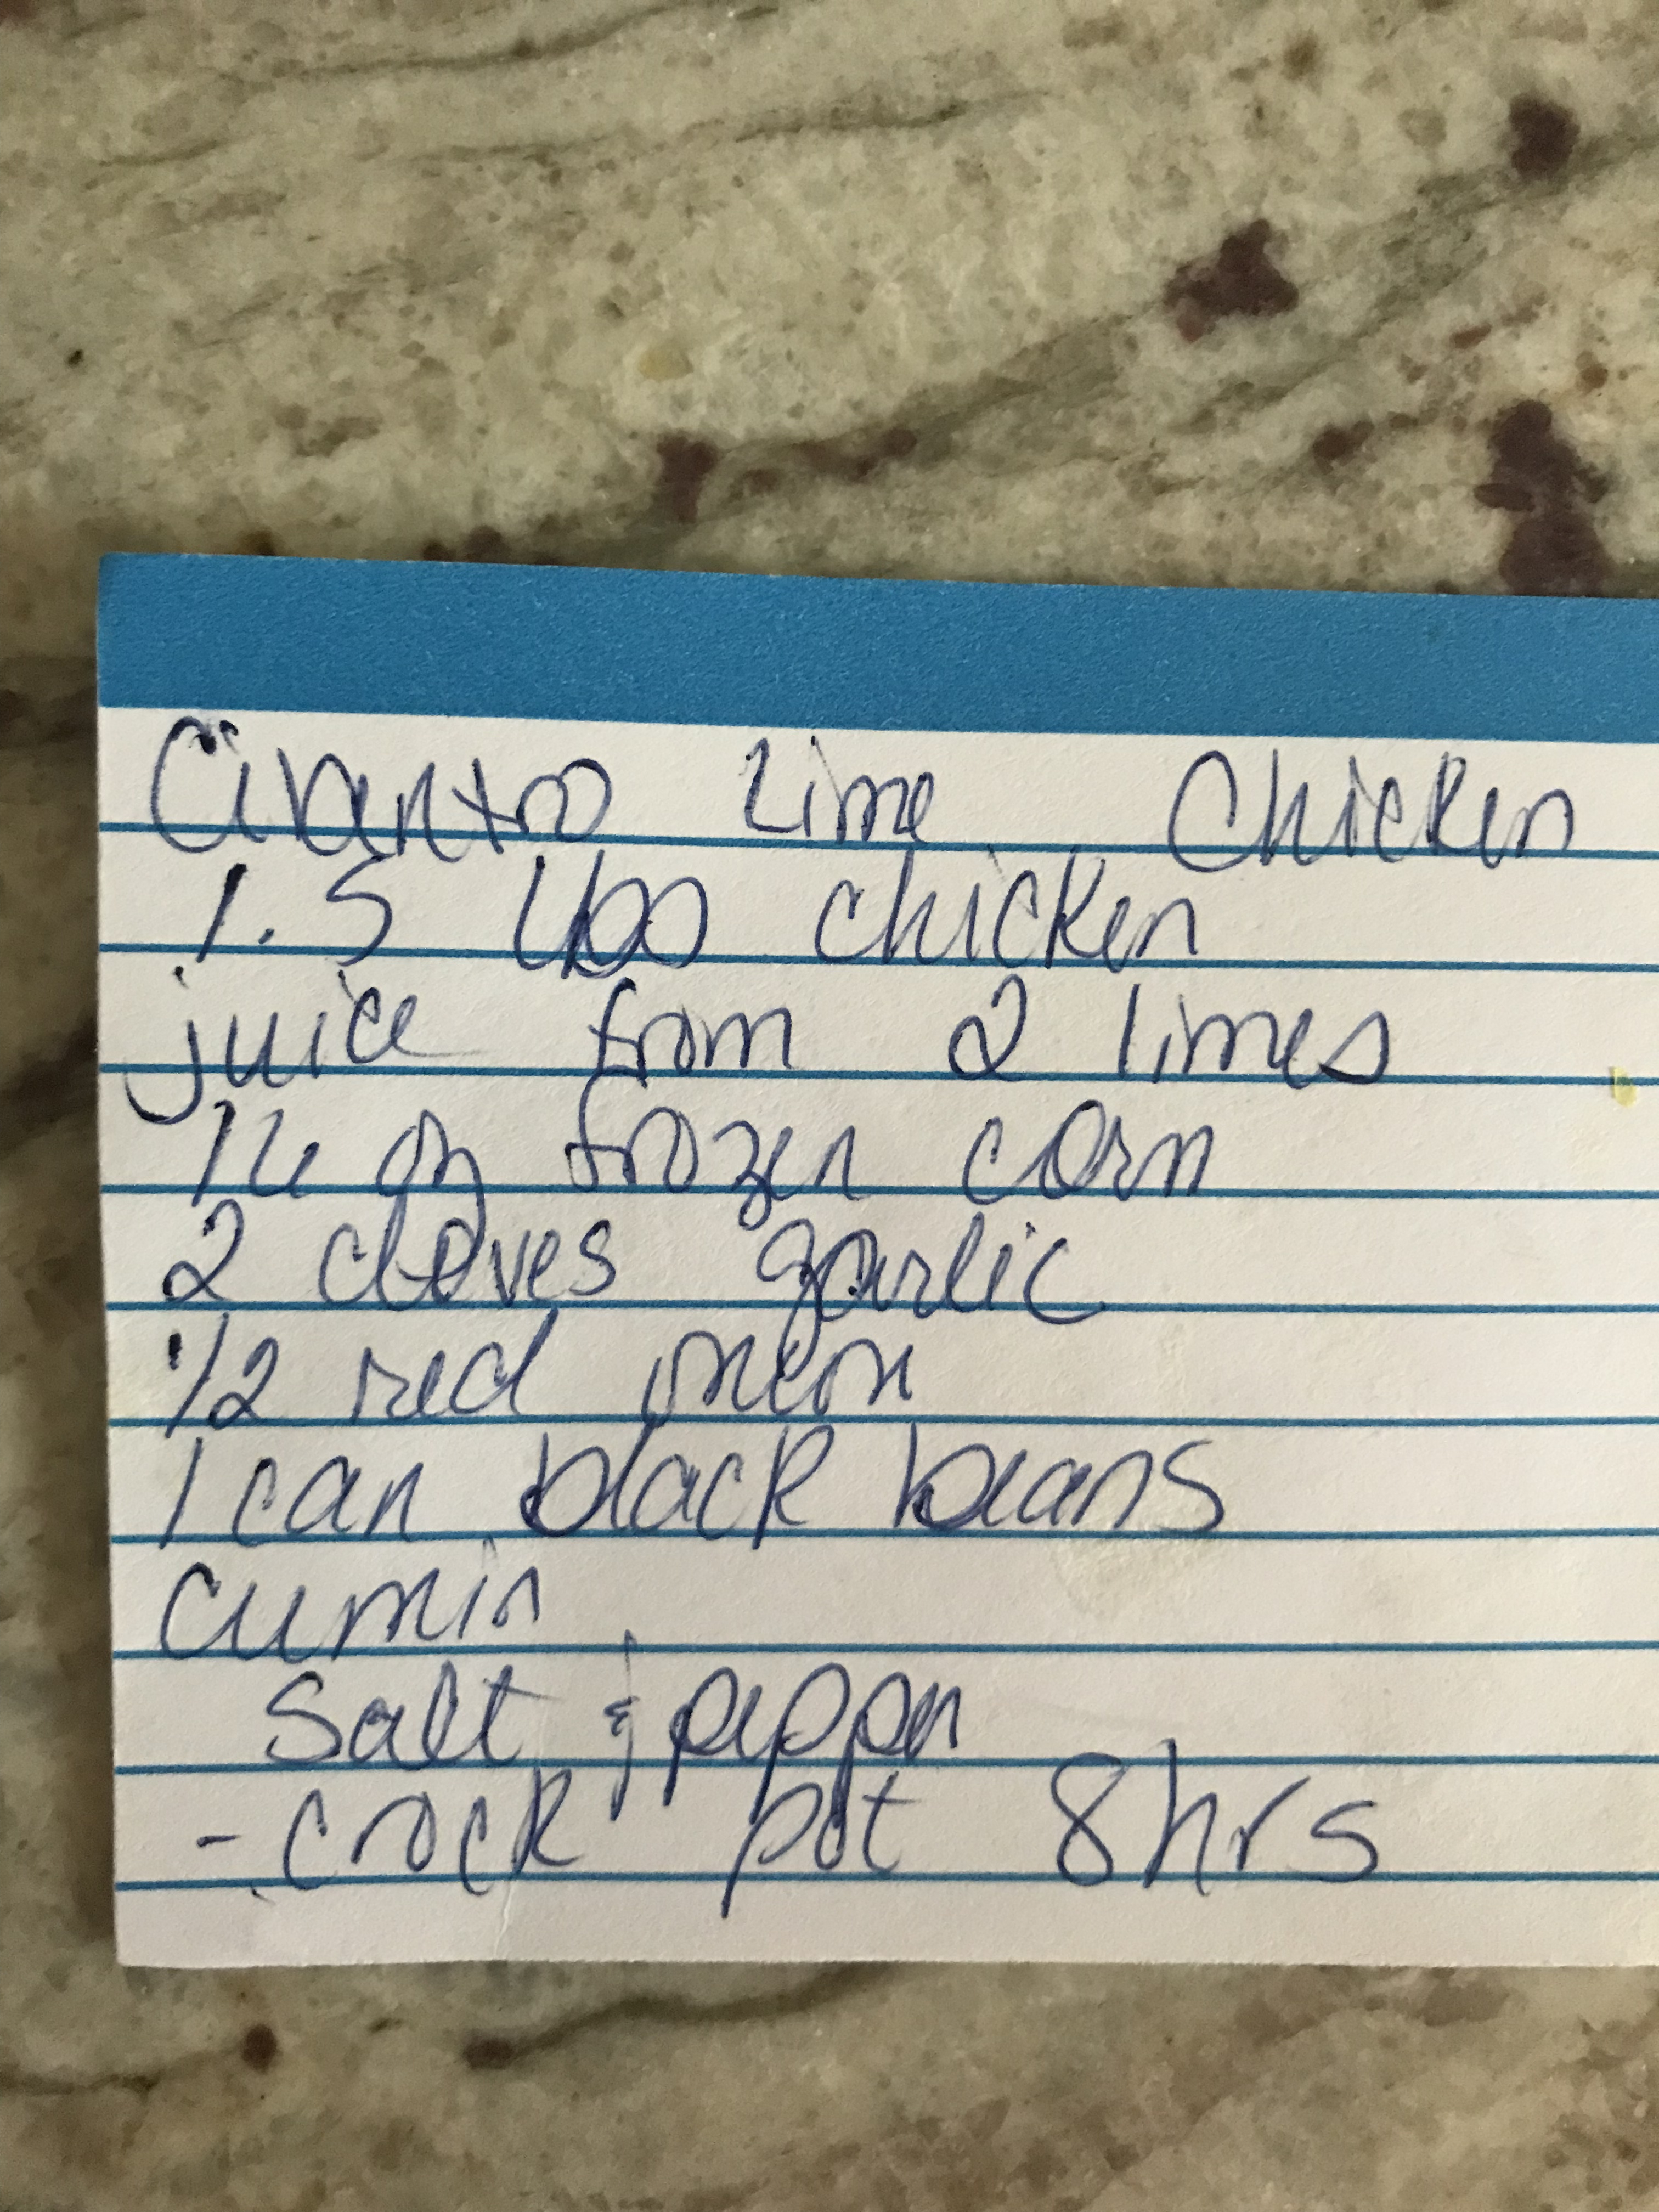 Cilantro Lime Chicken
1.5 lbs chicken
juice from 2 limes
16 oz frozen corn
2 cloves garlic
1/2 red onion
1 can black beans
cumin
Salt & pepper
- crock pot 8hrs